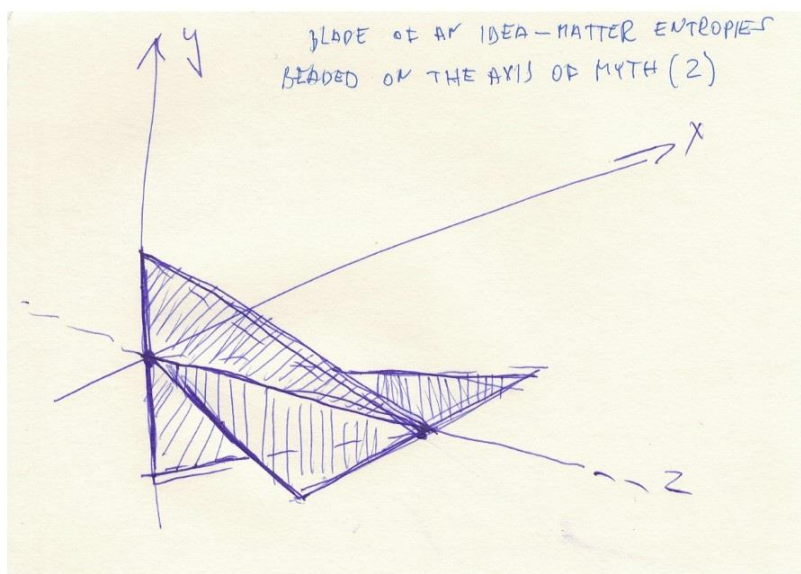 BLADE OF AN IDEA-MATTER ENTROPIES
BEADED ON THE AXIS OF MYTH (2)
Y
X
Z